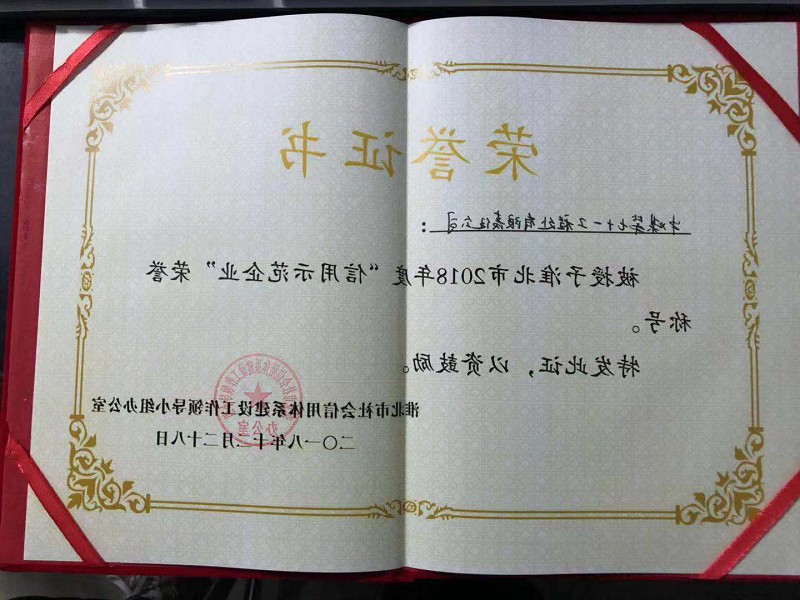 荣誉证书
中煤第七十一工程处有限责任公司：
被授予淮北市2018年度“信用示范企业”荣誉
称号。
特发此证，以资鼓励。
淮北市社会信用体系建设工作领导小组办公室
二〇一八年十二月二十八日
办公室